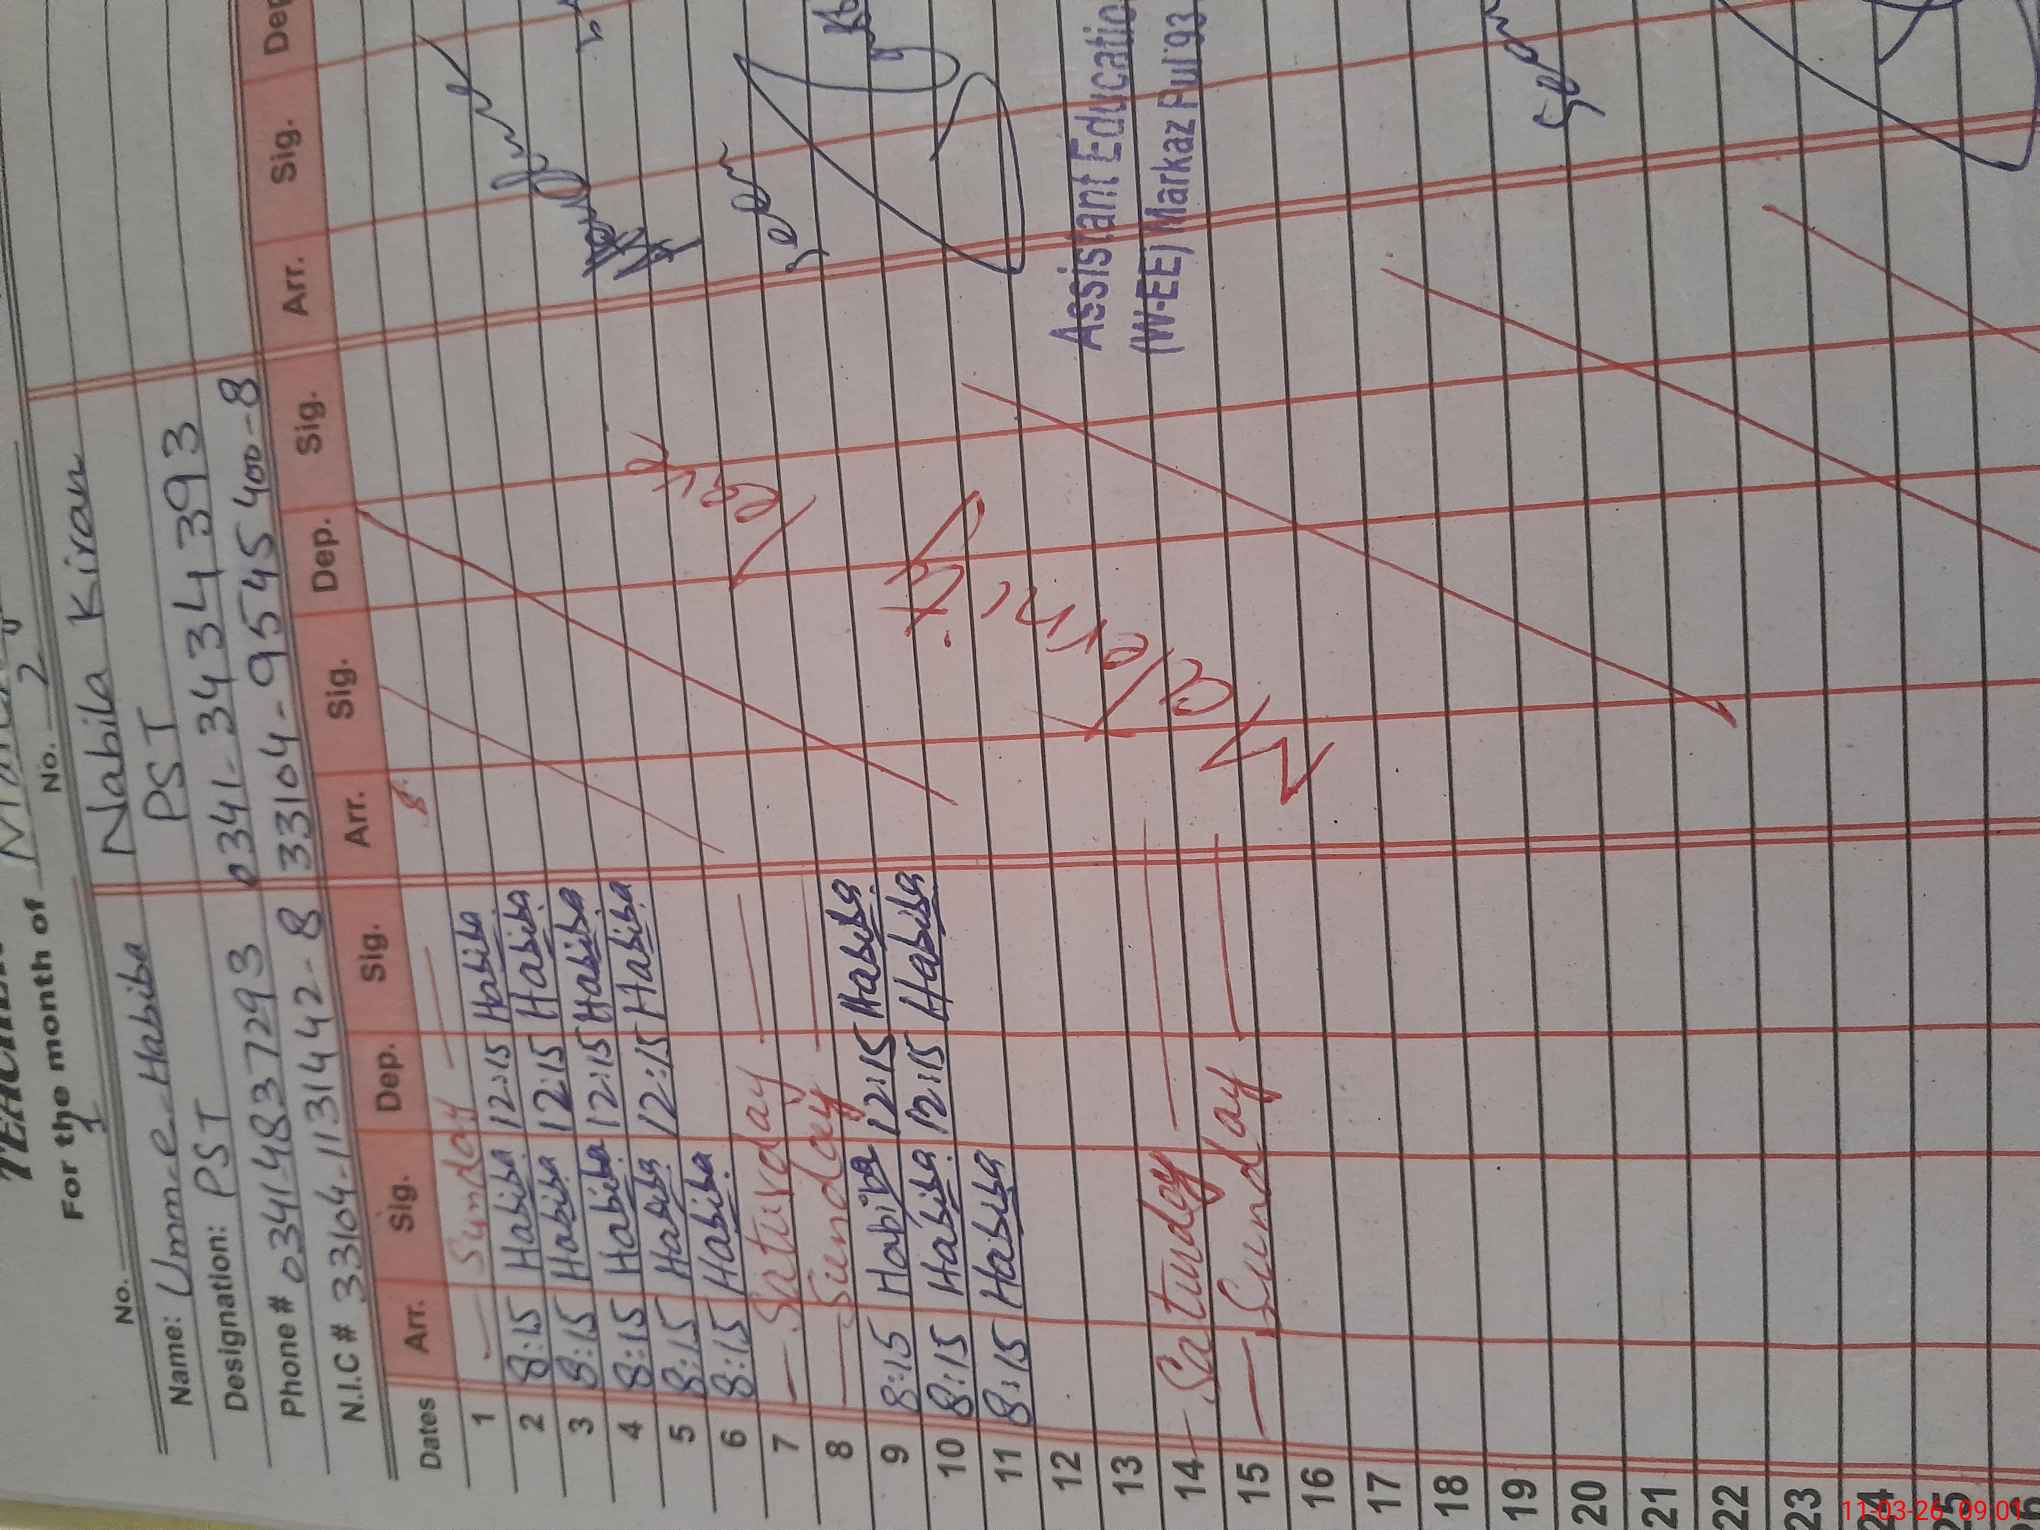 For the month of
No. 1 No. 2
Name: Umm-e-Habiba Nabila Kiran
Designation: PST PST
Phone # 0341-4837293 0341-3434393
N.I.C # 33104-1131442-8 33104-9545400-8
Dates Arr. Sig. Dep. Sig. Arr. Sig. Dep. Sig. Arr. Sig. Dep
1 Sunday
2 8:15 Habiba 12:15 Habiba
3 8:15 Habiba 12:15 Habiba
4 8:15 Habiba 12:15 Habiba
5 8:15 Habiba 12:15 Habiba
6 8:15 Habiba
7 Saturday
8 Sunday
9 8:15 Habiba 12:15 Habiba
10 8:15 Habiba 12:15 Habiba
11 8:15 Habiba
12
13
14 Saturday
15 Sunday
16
17
18
19
20
21
22
23
24
25
26
Maternity
Leave
Assistant Educatio
(W-EE) Markaz Pul 93
11-03-26 09:01